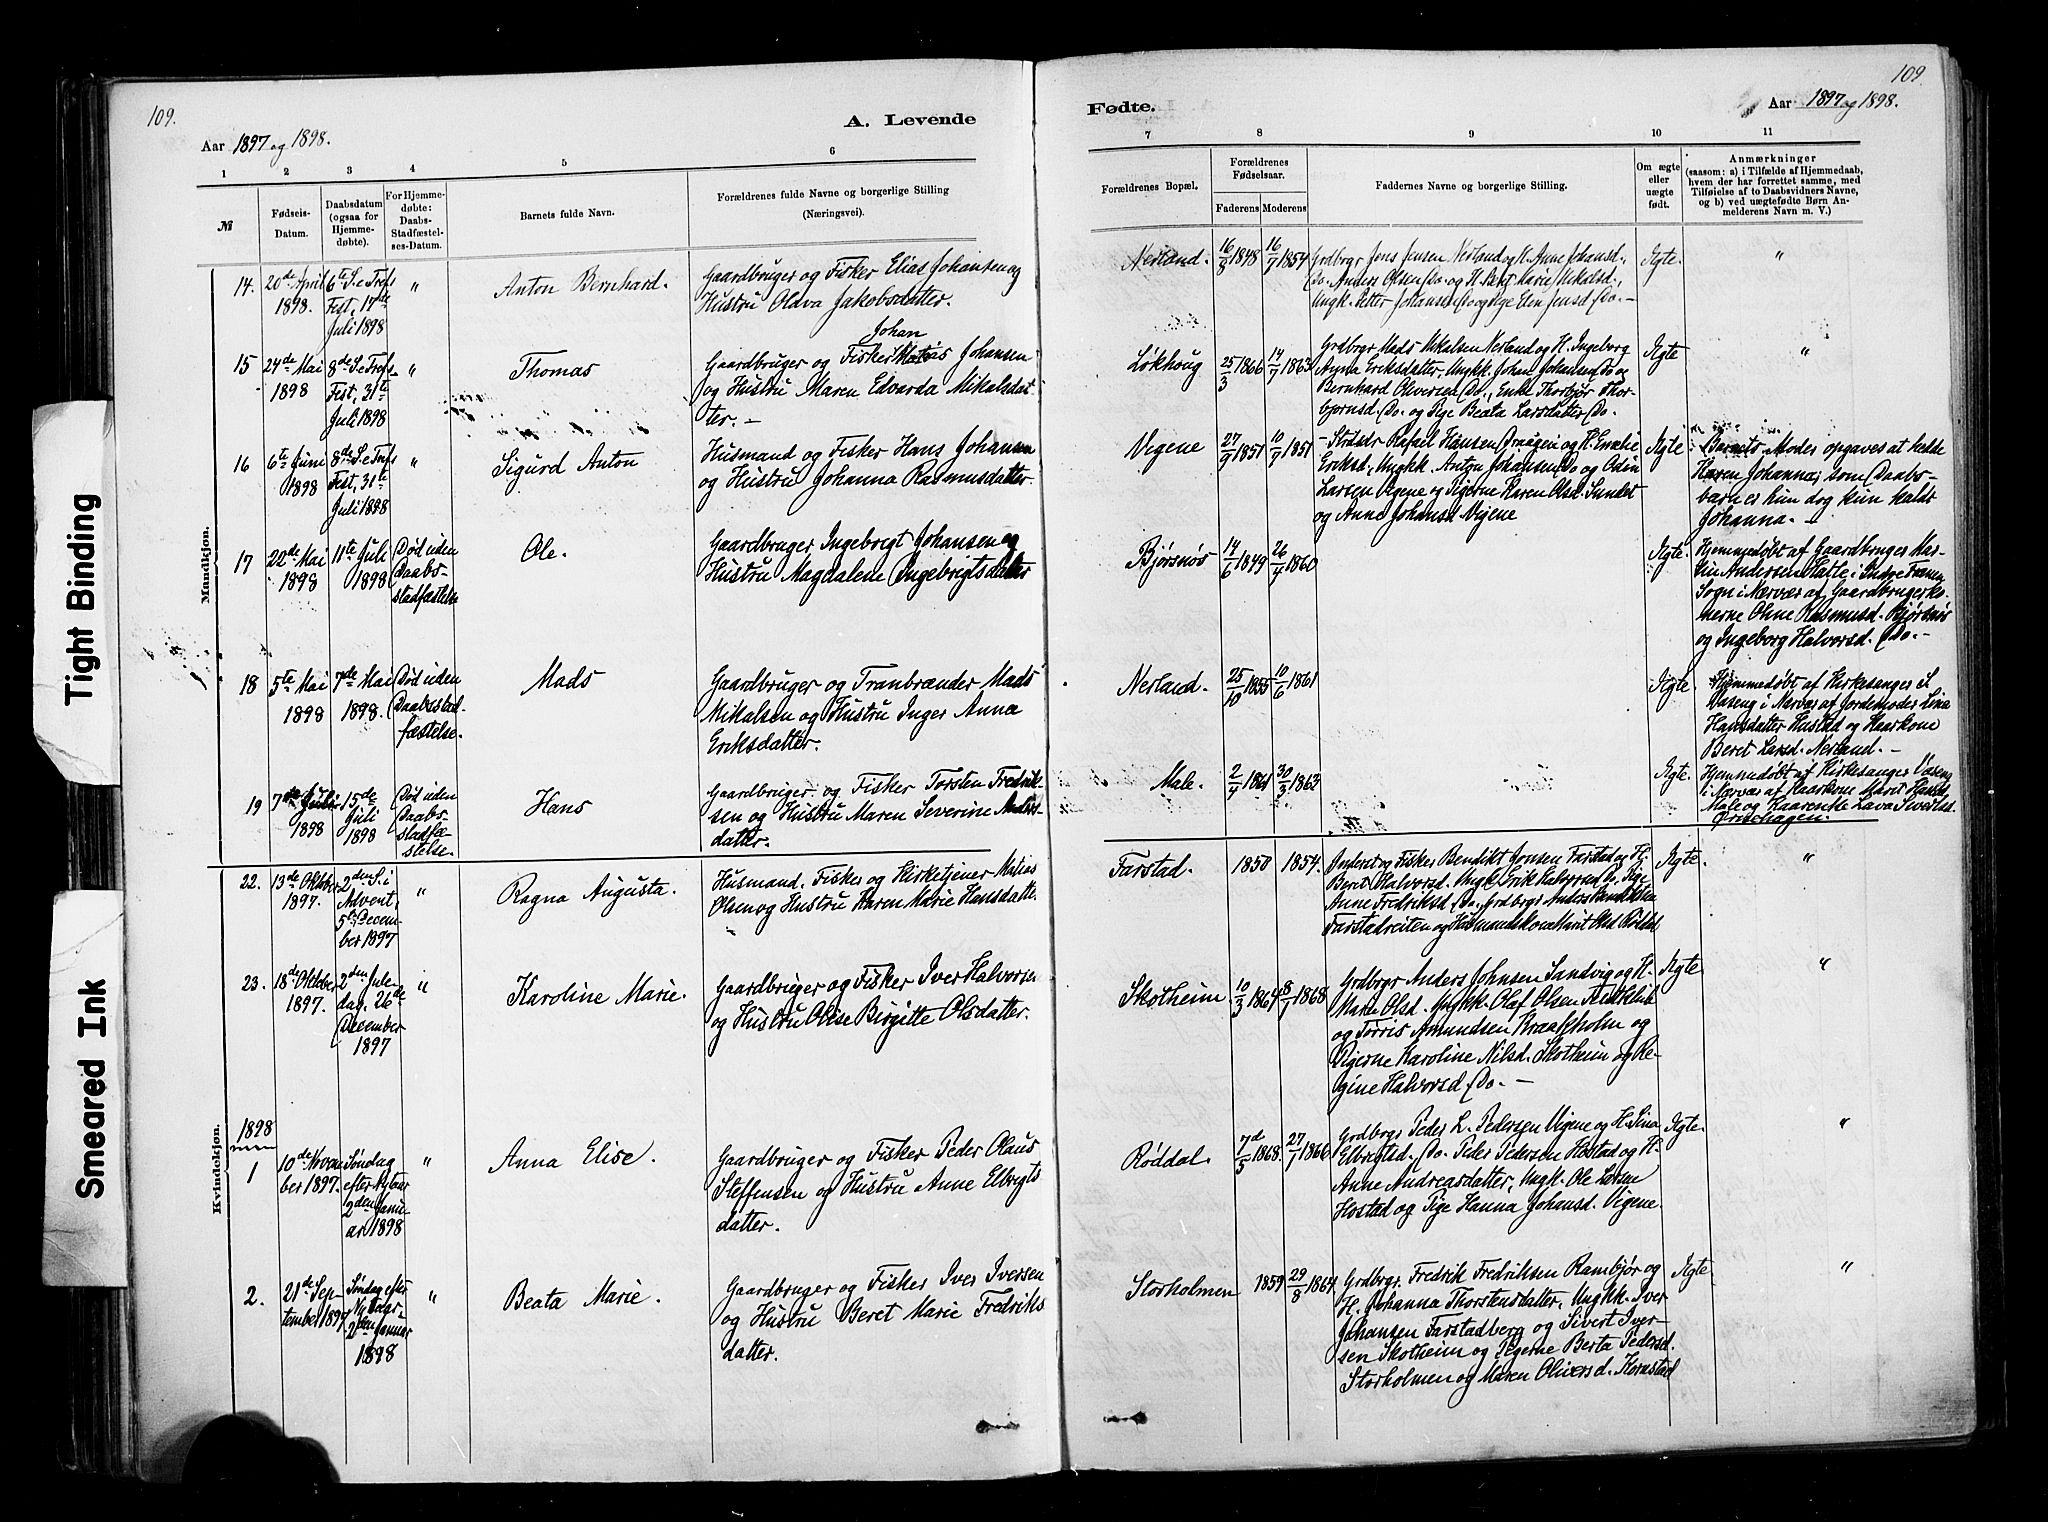 109.
Aar 1897 og 1898.
A. Levende
1 2 3 4 5 6
№
Fødsels-
Datum.
Daabsdatum
(ogsaa for
Hjemme-
døbte).
For Hjemme-
døbte:
Daabs-
Stadfæstel-
ses-Datum.
Barnets fulde Navn.
Forældrenes fulde Navne og borgerlige Stilling
(Næringsvei).
Mandkjøn.
14.
20de April
1898.
6te S. e Tref
Fest, 17de
Juli 1898
"
Anton Bernhard.
Gaardbruger og Fisker Elias Johansen og
Hustru Olava Jakobsdatter.
15
24de Mai
1898
8de S. e Tref
Fest, 31te
Juli 1898
"
Thomas
Johan
Gaardbruger og Fisker Johansen
og Hustru Maren Edvarda Mikalsdat-
ter. —
16
6te Juni
1898
8de S. e Tref
Fest, 31te
Juli 1898
"
Sigurd Anton
Husmand og Fisker Hans Johansen
og Hustru Johanna Rasmusdatter.
17
22de Mai
1898
11te Juli
1898
Død uden
Daabs-
stadfæstelse
Ole.
Gaardbruger Ingebrigt Johansen og
Hustru Magdalene Ingebrigtsdatter
18
5te Mai
1898
7de Mai
1898.
Død uden
Daabsstad-
fæstelse.
Mads
Gaardbruger og Tranbrænder Mads
Mikalsen og Hustru Inger Anna
Eriksdatter.
19
7de Juli
1898
15de
Juli
1898
Død uden
Daabs-
stadfæ-
stelse.
Hans
Gaardbruger og Fisker Torsten Fredrik-
sen og Hustru Maren Severine
datter.
Kvindekjøn.
22.
13de Oktober
1897.
2den S. i
Advent,
5te Decem-
ber 1897
"
Ragna Augusta.
Husmand, Fisker og Kirketjener Matias
Olsen og Hustru Karen Marie Hansdatter.
23.
18de Oktober
1897.
2den Jule-
dag, 26de
December
1897
"
Karoline Marie.
Gaardbruger og Fisker Iver Halvorsen
og Hustru Olise Birgitte Olsdatter.
1898
1
10de Novem-
ber 1897.
Søndag
efter Nytaar
2den Janu-
ar 1898
"
Anna Elise.
Gaardbruger og Fisker Peder Olaus
Steffensen og Hustru Anne Elbrigts
datter.
2.
21de Sep-
tember 1897
Søndag efter
Nytaar
2den Januar
1898
"
Beata Marie.
Gaardbruger og Fisker Iver Iversen
og Hustru Beret Marie Fredriks
datter.
109
Fødte.
Aar 1897 og 1898.
7 8 9 10 11
Forældrenes Bopæl.
Forældrenes
Fødselsaar.
Faderens. Moderens.
Faddernes Navne og borgerlige Stilling.
Om ægte
eller
uægte
født.
Anmærkninger
(saasom: a) i Tilfælde af Hjemmedaab,
hvem der har forrettet samme, med
Tilføielse af to Daabsvidners Navne,
og b) ved uægtefødte Børn An-
melderens Navn m. V.)
Nerland.
16/8 1848
16/7 1854
Grdbrgr Jens Jensen Nerland og H. Anne Johansd.,
Do. Anders Olsen Do. og H. Beret Marie Mikalsd.,
Ungk. Petter Johansen Do og Pige Elen Jensd Do. —
Ægte.
"
Løkhoug
25/3 1866
14/7 1863
Grdbrgr Mads Mikalsen Nerland og H. Ingeborg
Anna Eriksdatter, Ungkk. Johan Johansen Do og
Bernhard Oliversen Do., Enke Thorbjør Thor-
bjørnsd. Do. og Pige Beata Larsdatter Do.
Ægte
"
Vigene
27/9 1851
10/7 1851
Rafael Hansen Draagen og H. Emelie
Eriksd., Ungkk. Anton Johansen Do og Odin
Larsen Vigene og Pigerne Karen Olsd. Sundet
og Anne Johansd Vigene
Ægte
Barnets Moder opgaves at hedde
Karen Johanna; som Daabs-
barn er hun dog kun kaldt
Johanna. —
Bjørsnøs
14/6 1849
26/4 1860
Ægte.
Hjemmedøbt af Gaardbruger Mar-
tin Andersen Hatle i Indre Frænen
Sogn i Nærvær af Gaardbrugerko-
nerne Oline Rasmusd. Bjørsnøs
og Ingeborg Halvorsd. Do. —
Nerland.
25/10 1855
10/6 1861
Ægte.
Hjemmedøbt af Kirkesanger S.
Vaseng i Nærvær af Jordemoder Lina
Hansdatter Hustad og Kaarkone
Beret Larsd. Nerland. —
Male.
2/4 1861
30/3 1862
Ægte.
Hjemmedøbt af Kirkesanger Vaseng
i Nærvær af Kaarkone Marit Hansd.
Male og Kaarenke Lava Sivertsd.
Farstad.
1850
1854.
Inderst og Fisker Bendikt Jonsen Farstad og H.
Beret Halvorsd. Ungk. Erik Halvorsen Do. Pige
Anne Fredriksd Do., Grdbrgr Anders
Farstadreiten og Husmandskone Marit Olsd Røddal
Ægte.
"
Skotheim
10/3 1864
8/7 1868
Grdbrgr Anders Johnsen Sandvig og H.
Maren Olsd. Ungkk. Olaf Olsen
og Torris Amundsen Kraakholm og
Pigerne Karoline Nilsd. Skotheim og Re-
gine Halvorsd Do. —
Ægte
"
Røddal.
7d/5 1868.
27/7 1866
Grdbrgr Peder L. Pedersen Vigene og H. Lina
Elbrigtsd. Do. Peder Pedersen Hostad og H.
Anne Andreasdatter, Ungk. Ole Larsen
Hostad og Pige Hanna Johansd. Vigene.
Ægte.
"
Storholmen
1859
29/8 1864
Grdbrgr. Fredrik Fredriksen Rambjør og
H. Johanna Thorstensdatter, Ungkk. Iver
Johansen Farstadberg og Sivert Iver-
sen Skotheim og Pigerne Berta Pedersd.
Storholmen og Maren Oliversd. Kornstad
Ægte
"
Tight Binding
Smeared Ink